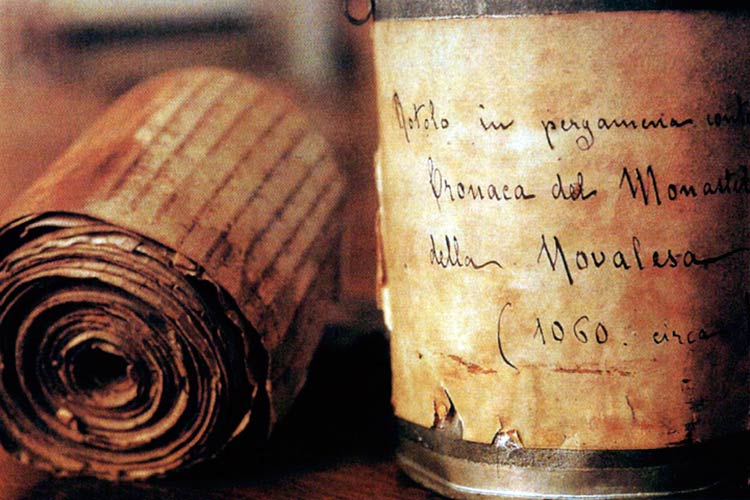 Rotolo in pergamena cont
Cronaca del Monaste
della Novalesa
(1060. circa